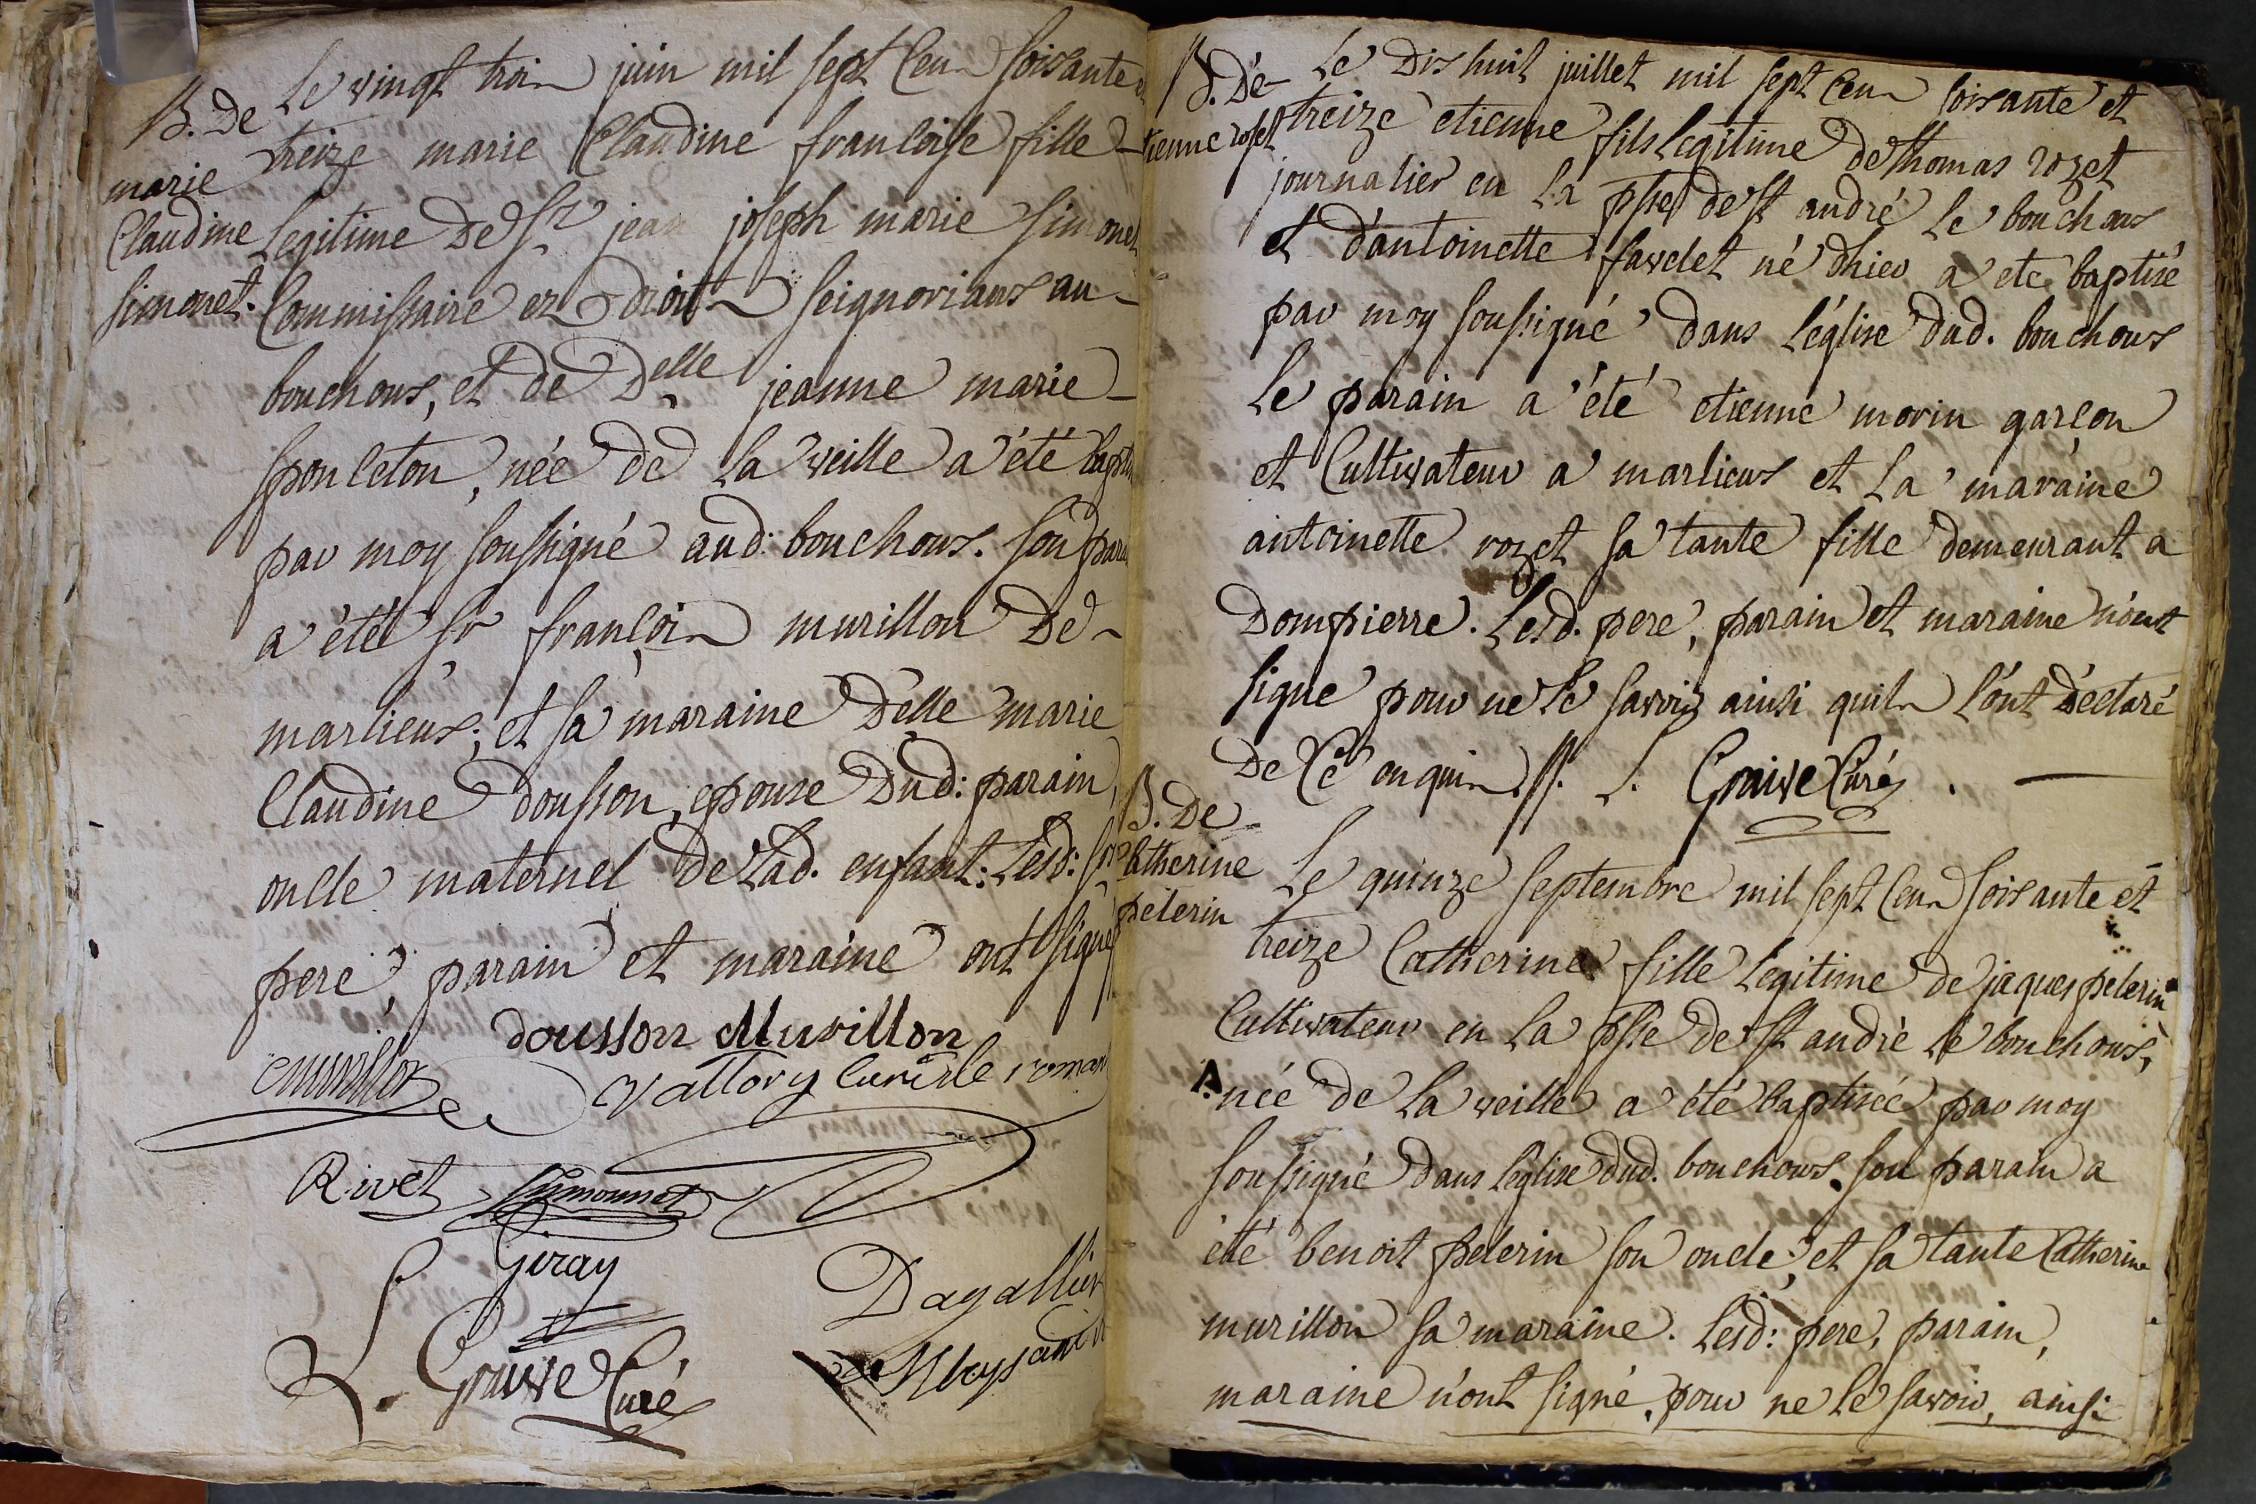 B. De
marie
Claudine
simonet.
Le vingt trois juin mil sept Cens soisante et
treize marie Claudine francoise fille
Legitime De Sr jean joseph marie simonet
Commissaire ez Droits seignoriaus au
bouchous, et de Delle jeanne marie
ponleton, née de la veille a été bapti
par moy soussigné aud: bouchous. son para
a été sr françois murillon De
marlieus; et sa maraine Delle marie
Claudine dousson, epouse Dud: parain,
oncle maternel de Lad. enfant: Lesd: srs
pere, parain et maraine ont signé
dousson Murillon
Murillon Vallory Curé de romans
Rivet Symonnet
Giray
Dagallier
L. Graive Curé
B. De
tienne roset
Le Dishuit juillet mil sept Cens soisante et
treize etienne fils Legitime de thomas rozet
journalier en La psse de st andré le bouchous
et d'antoinette favelet né d'hier a ete baptisé
par moy soussigné dans l'église dud. bouchous
Le parain a été etienne morin garçon
et Cultivateur a marlieus et La maraine
antoinette rozet sa tante fille demeurant a
Dompierre. Lesd. pere, parain et maraine n'ont
signé pour ne le savoir ainsi quils l'ont déclaré
De Ce enquis //. L. Graive Curé.
B. De
Catherine
pelerin
Le quinze septembre mil sept Cens soisante et
treize Catherine fille Legitime de jaques pelerin
Cultivateur en La psse de st andré le bouchous,
A. née de La veille a été baptisée par moy
soussigné dans l'eglise dud. bouchous. son parain a
été benoit pelerin son oncle, et sa tante Catherine
murillon sa maraine. Lesd: pere, parain,
maraine n'ont signé, pour ne le savoir, ainsi